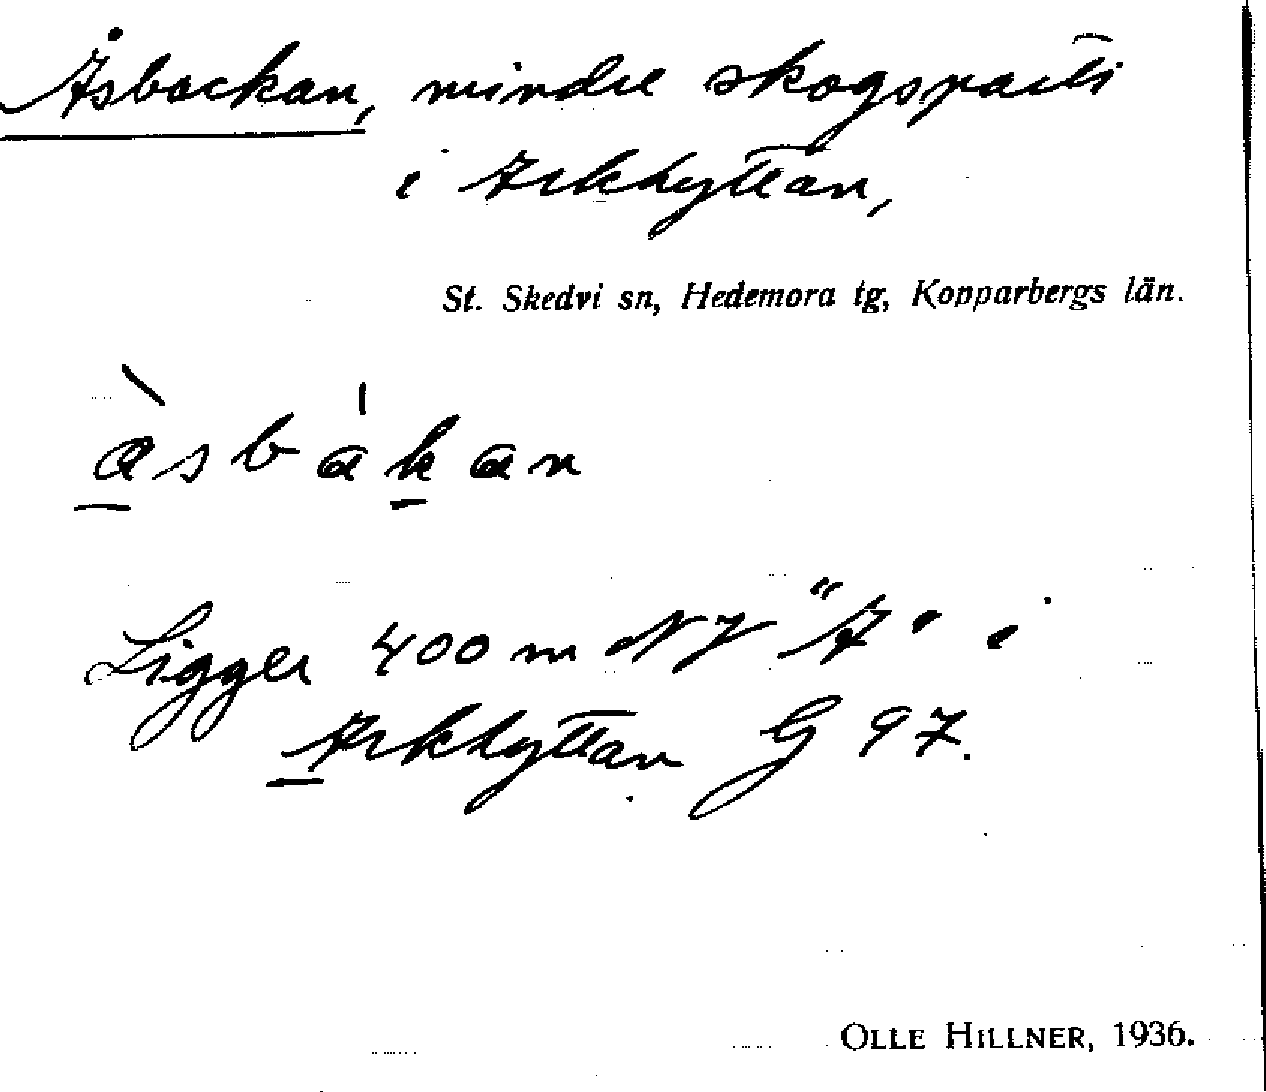 Åsbackan, mindre skogsparti
i Arkhyttan,
St. Skedvi sn, Hedemora tg, Kopparbergs län.
àsbákan
Ligger 400 m NV "A" i
Arkhyttan G 97.
OLLE HILLNER, 1936.